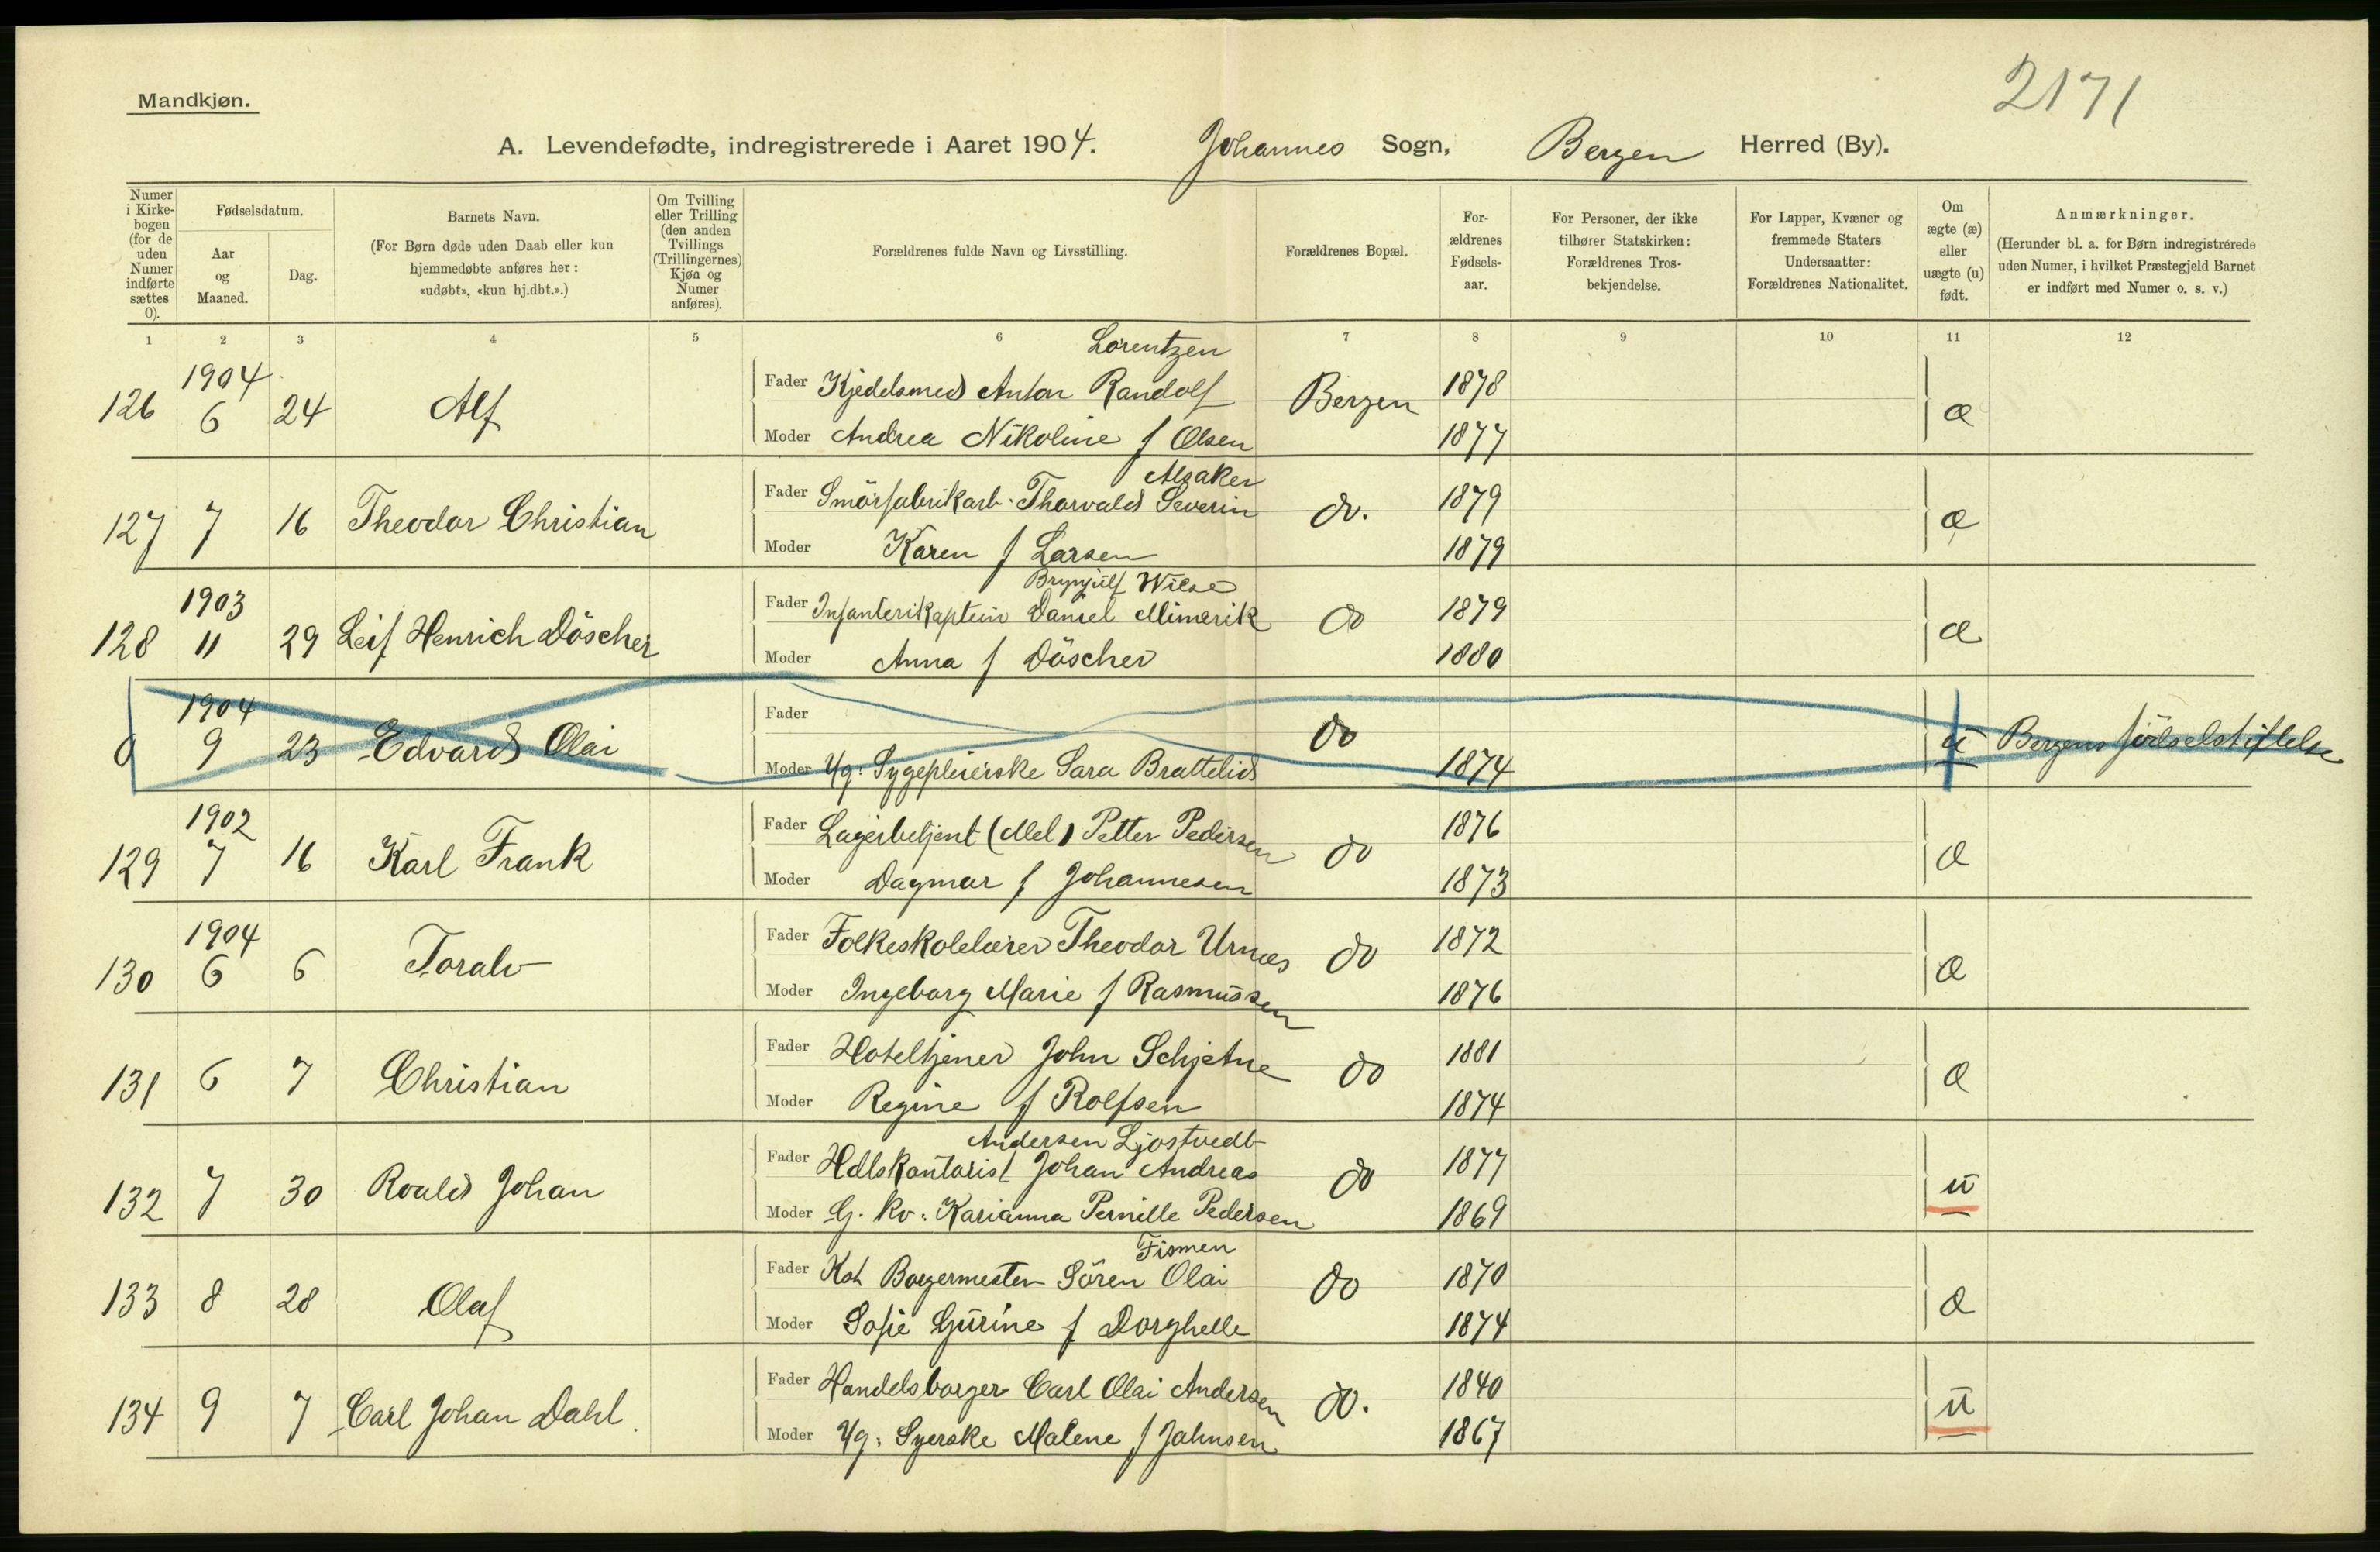 2171
Mandkjøn.
A. Levendefødte, indregistrerede i Aaret 1904. Johannes Sogn, Bergen Herred (By).
Numer i Kirkebogen (for de uden Numer indførte sættes 0).
Fødselsdatum.
Aar og Maaned.
Dag.
Barnets Navn.
(For Børn døde uden Daab eller kun hjemmedøbte anføres her: «udøbt», «kun hj.dbt.».)
Om Tvilling eller Trilling (den anden Tvillings (Trillingernes) Kjøn og Numer anføres).
Forældrenes fulde Navn og Livsstilling.
Forældrenes Bopæl.
For-ældrenes Fødsels-aar.
For Personer, der ikke tilhører Statskirken: Forældrenes Tros-bekjendelse.
For Lapper, Kvæner og fremmede Staters Undersaatter: Forældrenes Nationalitet.
Om ægte (æ) eller uægte (u) født.
Anmærkninger.
(Herunder bl. a. for Børn indregistrerede uden Numer, i hvilket Præstegjeld Barnet er indført med Numer o. s. v.)
1 2 3 4 5 6 7 8 9 10 11 12
Lorentzen
126 1904 6 24 Alf Fader Kjedelsmed Anton Randolf Bergen 1878 æ
Moder Andrea Nikoline f Olsen 1877
Alsaker
127 7 16 Theodor Christian Fader Smörfabrikarb. Thorvald Severin do. 1879 æ
Moder Karen f Larsen 1879
Brynjulf Wilse
128 1903 11 29 Leif Henrich Döscher Fader Infanterikaptein Daniel Mimerik do 1879 æ
Moder Anna f Döscher 1880
0 1904 9 23 Edvard Olai Fader do u Bergens födselstiftelse
Moder Ug: Sygepleierske Sara Brattelid 1874
129 1902 7 16 Karl Frank Fader Lagerbetjent (Mel) Petter Pedersen do 1876 æ
Moder Dagmar f Johannesen 1873
130 1904 6 6 Toralv Fader Folkeskolelærer Theodor Urnes do 1872 æ
Moder Ingeborg Marie f Rasmussen 1876
131 6 7 Christian Fader Hoteltjener John Schjetne do 1881 æ
Moder Regine f Rolfsen 1874
Andersen Ljostvedt
132 7 30 Roald Johan Fader Hdlskontorist Johan Andreas do 1877 u
Moder G. kv: Karianna Pernille Pedersen 1869
Fismen
133 8 28 Olaf Fader Kst Borgermester Sören Olai do 1870 æ
Moder Sofie Gurine f Dorghelle 1874
134 9 7 Carl Johan Dahl. Fader Handelsborger Carl Olai Andersen do. 1840 u
Moder Ug: Syerske Malene f Jahnsen 1867